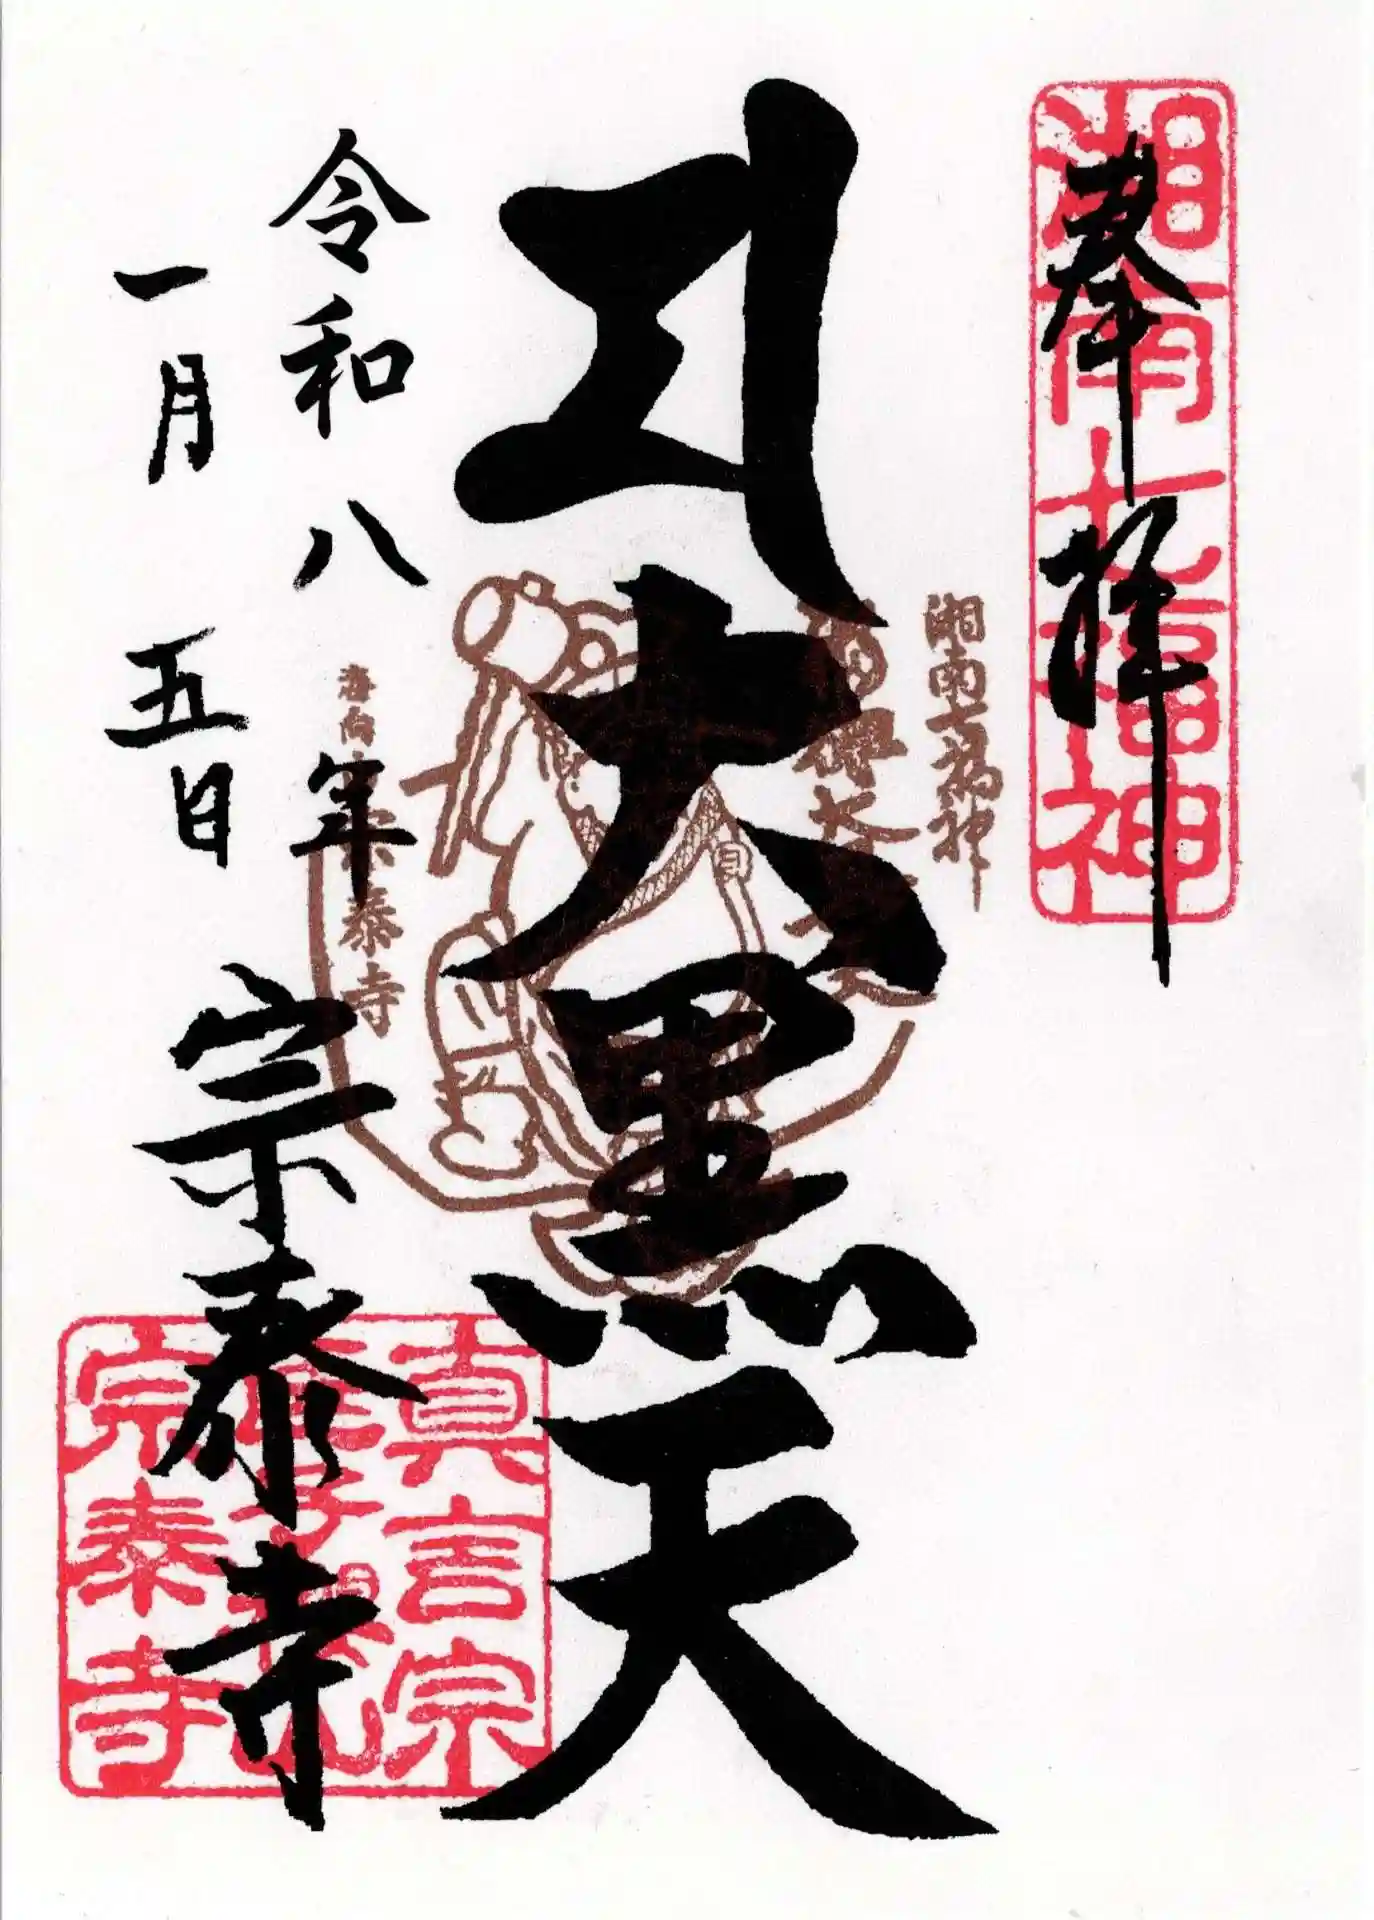 奉拝
湘南七福神
湘南七福神
大黒天
令和八年
一月五日
宗泰寺
泰寺
真言宗
宗泰寺